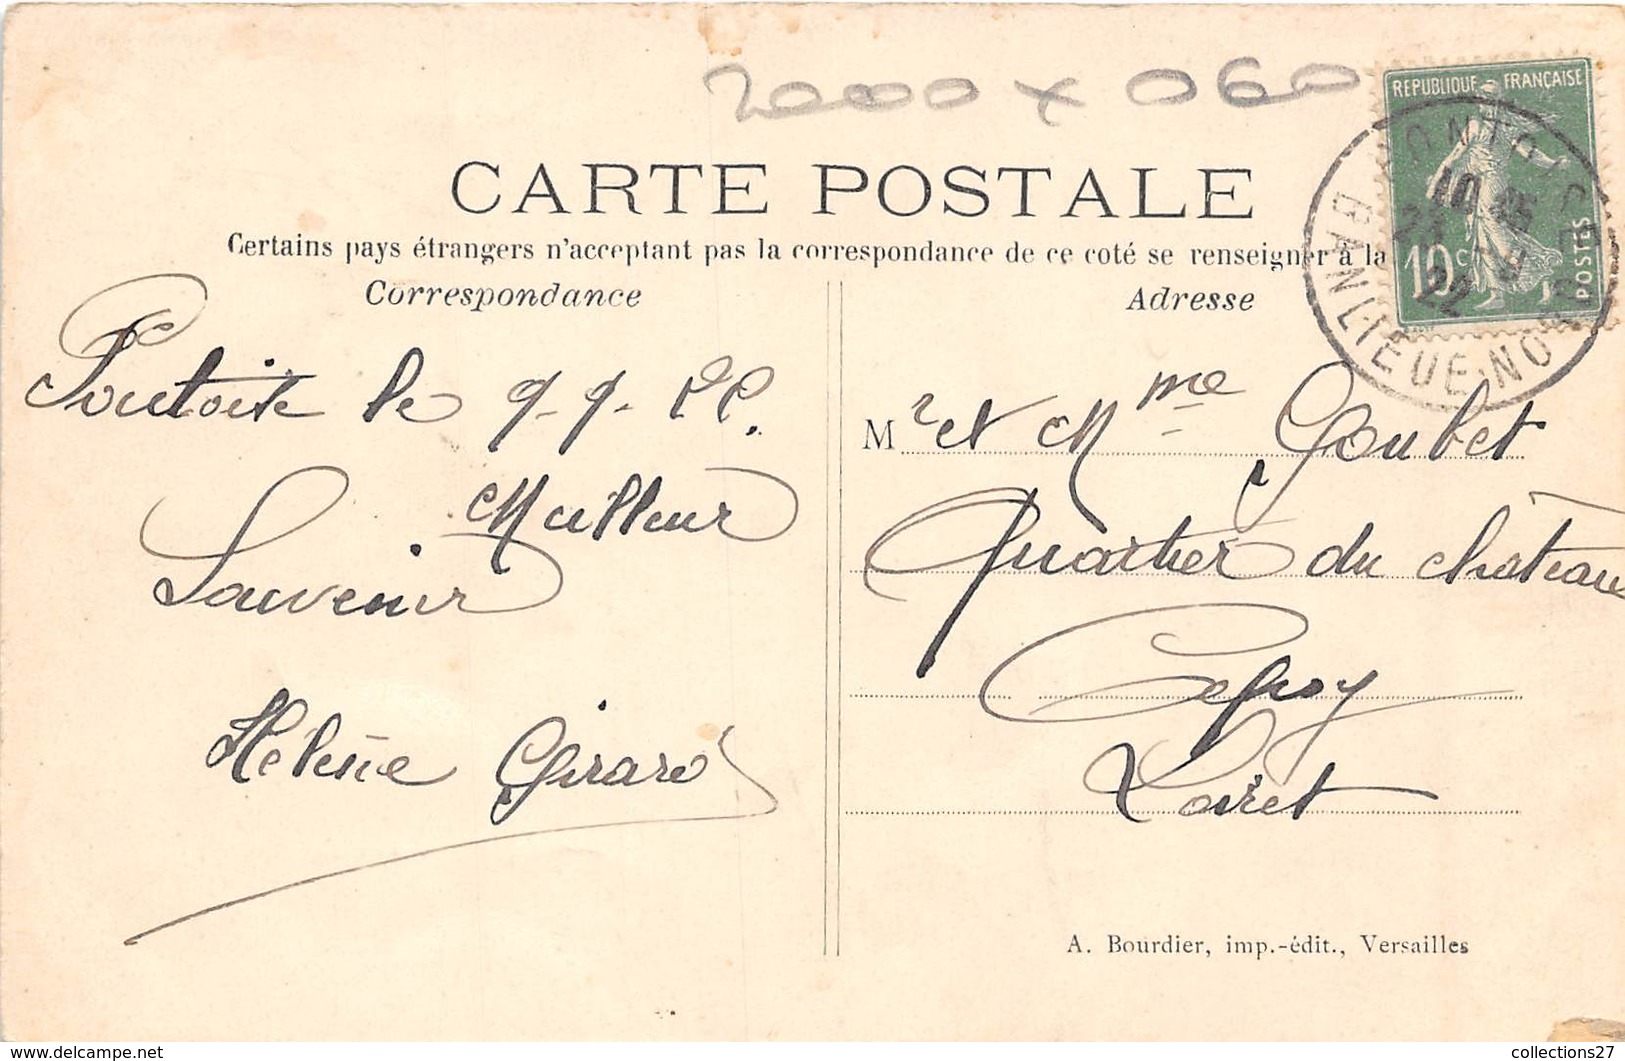 2000 x 060
REPUBLIQUE FRANÇAISE
10c
POSTES
PONTOISE
10 45
22
BANLIEUE NORD
CARTE POSTALE
Certains pays étrangers n'acceptant pas la correspondance de ce coté se renseigner à la
Correspondance
Pontoise le 9-9-22.
Meilleur
Souvenir
Hélène Girard
Adresse
Mr et Mme Goubet
Quartier du château
Cepoy
Loiret
A. Bourdier, imp.-édit., Versailles
collections27